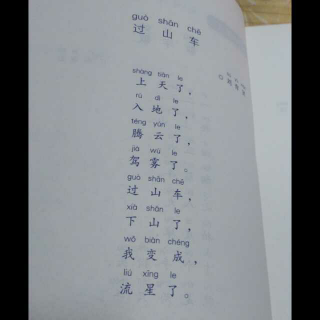 guò shān chē
过山车
shàng tiān le
上天了，
rù dì le
入地了，
téng yún le
腾云了，
jià wù le
驾雾了。
guò shān chē
过山车，
xià shān le
下山了，
wǒ biàn chéng
我变成，
liú xīng le
流星了。